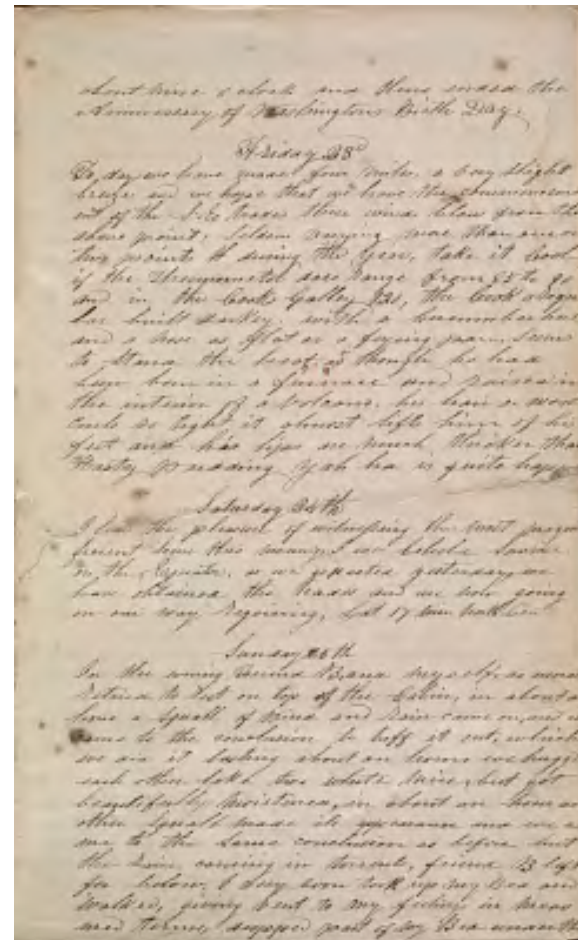 about nine o clock and thus ended the
Anniversary of Washingtons Birth Day.
Friday 23d
To day we have made four miles, a very slight
breeze and we hope that we have the commencem
ent of the S.E. trades these winds blow from the
same point. Seldom varying more than one or
two points during the year, take it Cool
if the Thermometer does range from 85 to 90
and in the Cooks Galley 120, the Cook a
built darkey, with a
and a nose as flat as a frying pan, seems
to stand the heat as though he had
been born in a furnace and raised in
the interior of a Volcano. his hair or wool
curls so tight it almost lifts him of his
feet and his lips are much thicker than
Hasty Pudding Yah ha is quite happy
Saturday 24th
I had the pleasure of witnessing the most magni
ficent sun rise this morning I ever beheld
the Equator, as we expected yesterday, we
have obtained the trades and are now going
on our way rejoicing, Lat 17 min
Sunday 25th
In the evening friend B. and myself as usual
retired to rest on top of the Cabin, in about a
hour a Squall of Wind and rain came on, and we
came to the conclusion to tuff it out, which
we did it lasting about an hour we hugged
each other like two white mice, but got
beautifully moistened, in about an hour an
other Squall made its appearance and we c
me to the same conclusion as before but
the rain coming in torrents, friend B left
for below, I very soon took up my Bed and
walked, giving vent to my feelings in meas
ured terms, part of my Bed underneath